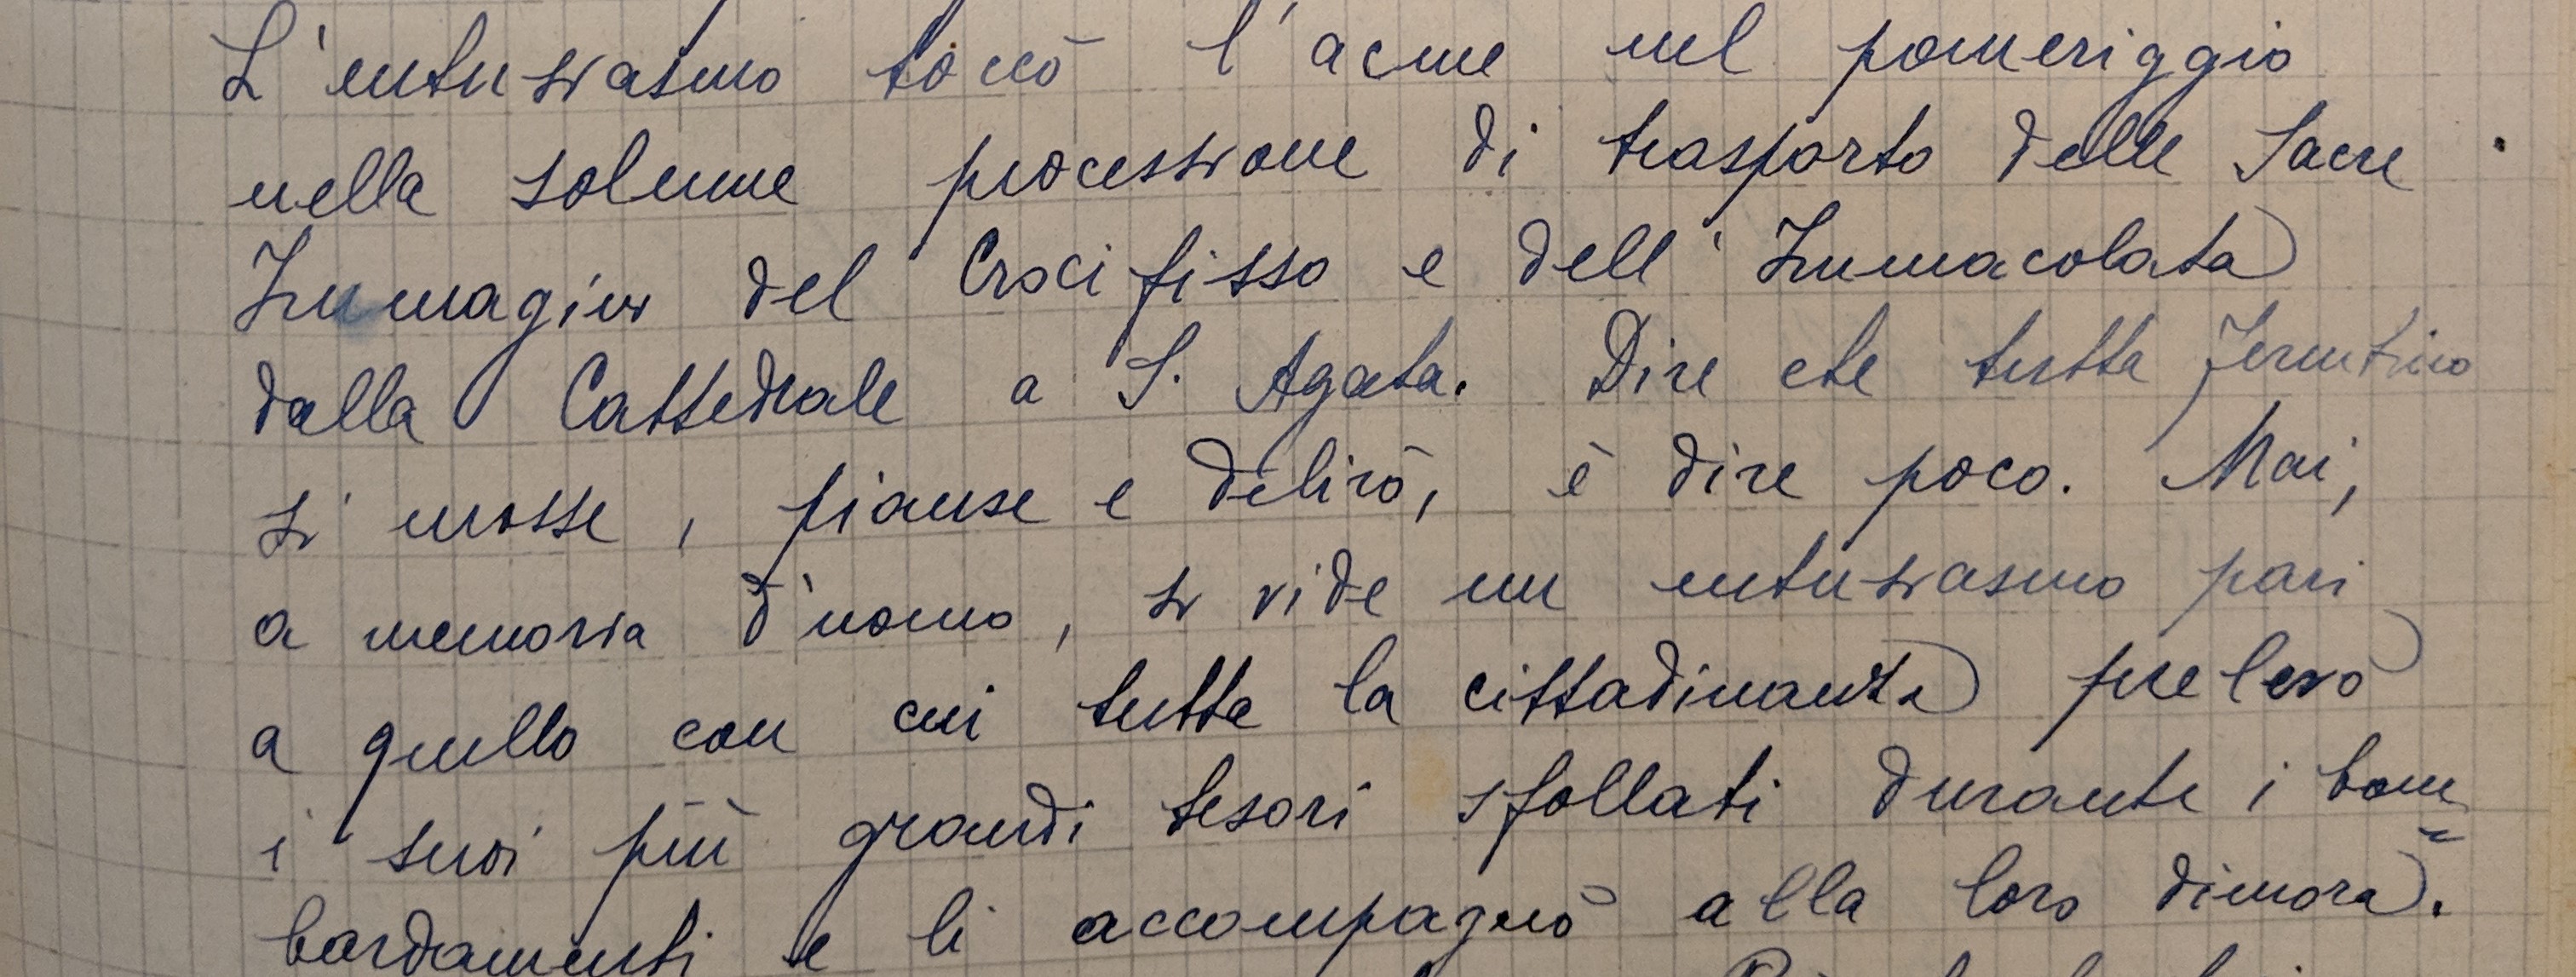 L'entusiasmo toccò l'acme nel pomeriggio
nella solenne processione di trasporto delle Sacre
Immagini del Crocifisso e dell'Immacolata
dalla Cattedrale a S. Agata. Dire che tutta Ferentino
si mosse, pianse e delirò, è dire poco. Mai,
a memoria d'uomo, si vide un entusiasmo pari
a quello con cui tutta la cittadinanza prelevò
i suoi più grandi tesori sfollati durante i bom=
bardamenti e li accompagnò alla loro dimora.